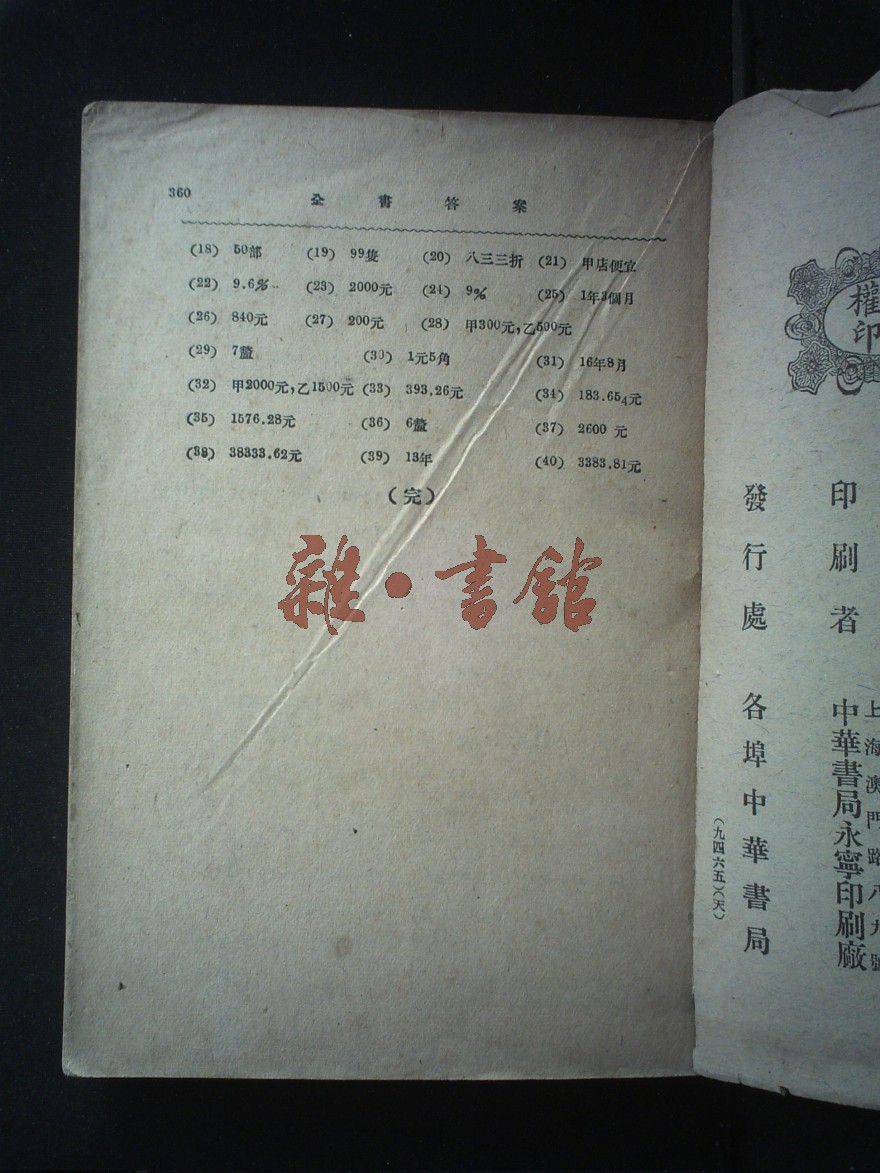 360 全書答案
(18) 50部 (19) 99隻 (20) 八三三折 (21) 甲店便宜
(22) 9.6% (23) 2000元 (24) 9% (25) 1年3個月
(26) 840元 (27) 200元 (28) 甲300元,乙500元
(29) 7釐 (30) 1元5角 (31) 16年8月
(32) 甲2000元,乙1500元 (33) 393.26元 (34) 183.654元
(35) 1576.28元 (36) 6釐 (37) 2600 元
(38) 38333.62元 (39) 13年 (40) 3383.81元
(完)
雜·書館
權印
上海澳門路八九號
印刷者 中華書局永寧印刷廠
發行處 各埠中華書局
(九四六五)(天)